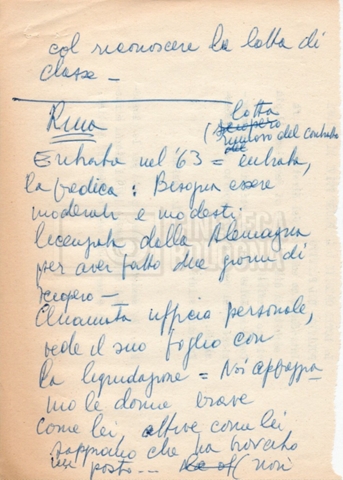 col riconoscere la lotta di
classe —
Rina
lotta
(sciopero rinnovo del contratto
Entrata nel '63 = entrata,
la predica : Bisogna essere
moderati e modesti
licenziata dalla Alemagna
per aver fatto due giorni di
sciopero —
Chiamata ufficio personale,
vede il suo foglio con
la liquidazione = Noi apprezzia
mo le donne brave
come lei, attive come lei
sappiamo che ha trovato
un posto... (non
CINETECA
BOLOGNA